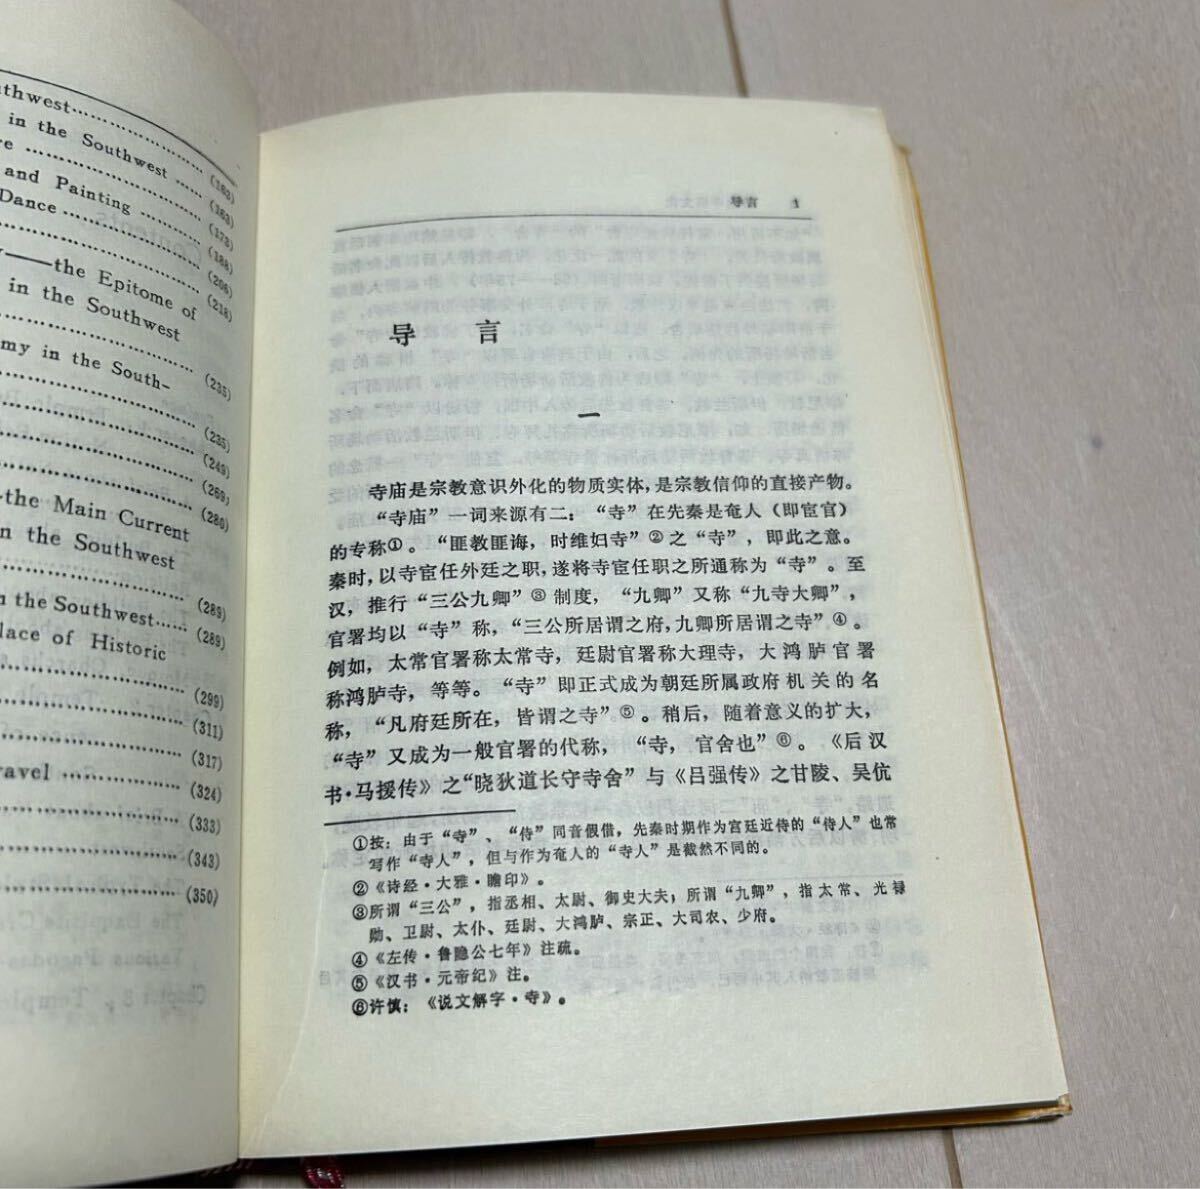 uthwest
in the Southwest
(163)
re
(163)
and Painting
(173)
Dance
(188)
(206)
y——the Epitome of
(218)
in the Southwest
my in the South-
(235)
(235)
(249)
(269)
(280)
the Main Current
n the Southwest
(289)
n the Southwest
(289)
lace of Historic
(299)
(311)
(317)
ravel
(324)
(333)
(343)
(350)
导言 1
导 言
一
寺庙是宗教意识外化的物质实体，是宗教信仰的直接产物。
“寺庙”一词来源有二：“寺”在先秦是奄人（即宦官）
的专称①。“匪教匪诲，时维妇寺”②之“寺”，即此之意。
秦时，以寺宦任外廷之职，遂将寺宦任职之所通称为“寺”。至
汉，推行“三公九卿”③制度，“九卿”又称“九寺大卿”，
官署均以“寺”称，“三公所居谓之府，九卿所居谓之寺”④。
例如，太常官署称太常寺，廷尉官署称大理寺，大鸿胪官署
称鸿胪寺，等等。“寺”即正式成为朝廷所属政府机关的名
称，“凡府廷所在，皆谓之寺”⑤。稍后，随着意义的扩大，
“寺”又成为一般官署的代称，“寺，官舍也”⑥。《后汉
书·马援传》之“晓狄道长守寺舍”与《吕强传》之甘陵、吴伉
①按：由于“寺”、“侍”同音假借，先秦时期作为宫廷近侍的“侍人”也常
写作“寺人”，但与作为奄人的“寺人”是截然不同的。
②《诗经·大雅·瞻卬》。
③所谓“三公”，指丞相、太尉、御史大夫；所谓“九卿”，指太常、光禄
勋、卫尉、太仆、廷尉、大鸿胪、宗正、大司农、少府。
④《左传·鲁隐公七年》注疏。
⑤《汉书·元帝纪》注。
⑥许慎：《说文解字·寺》。